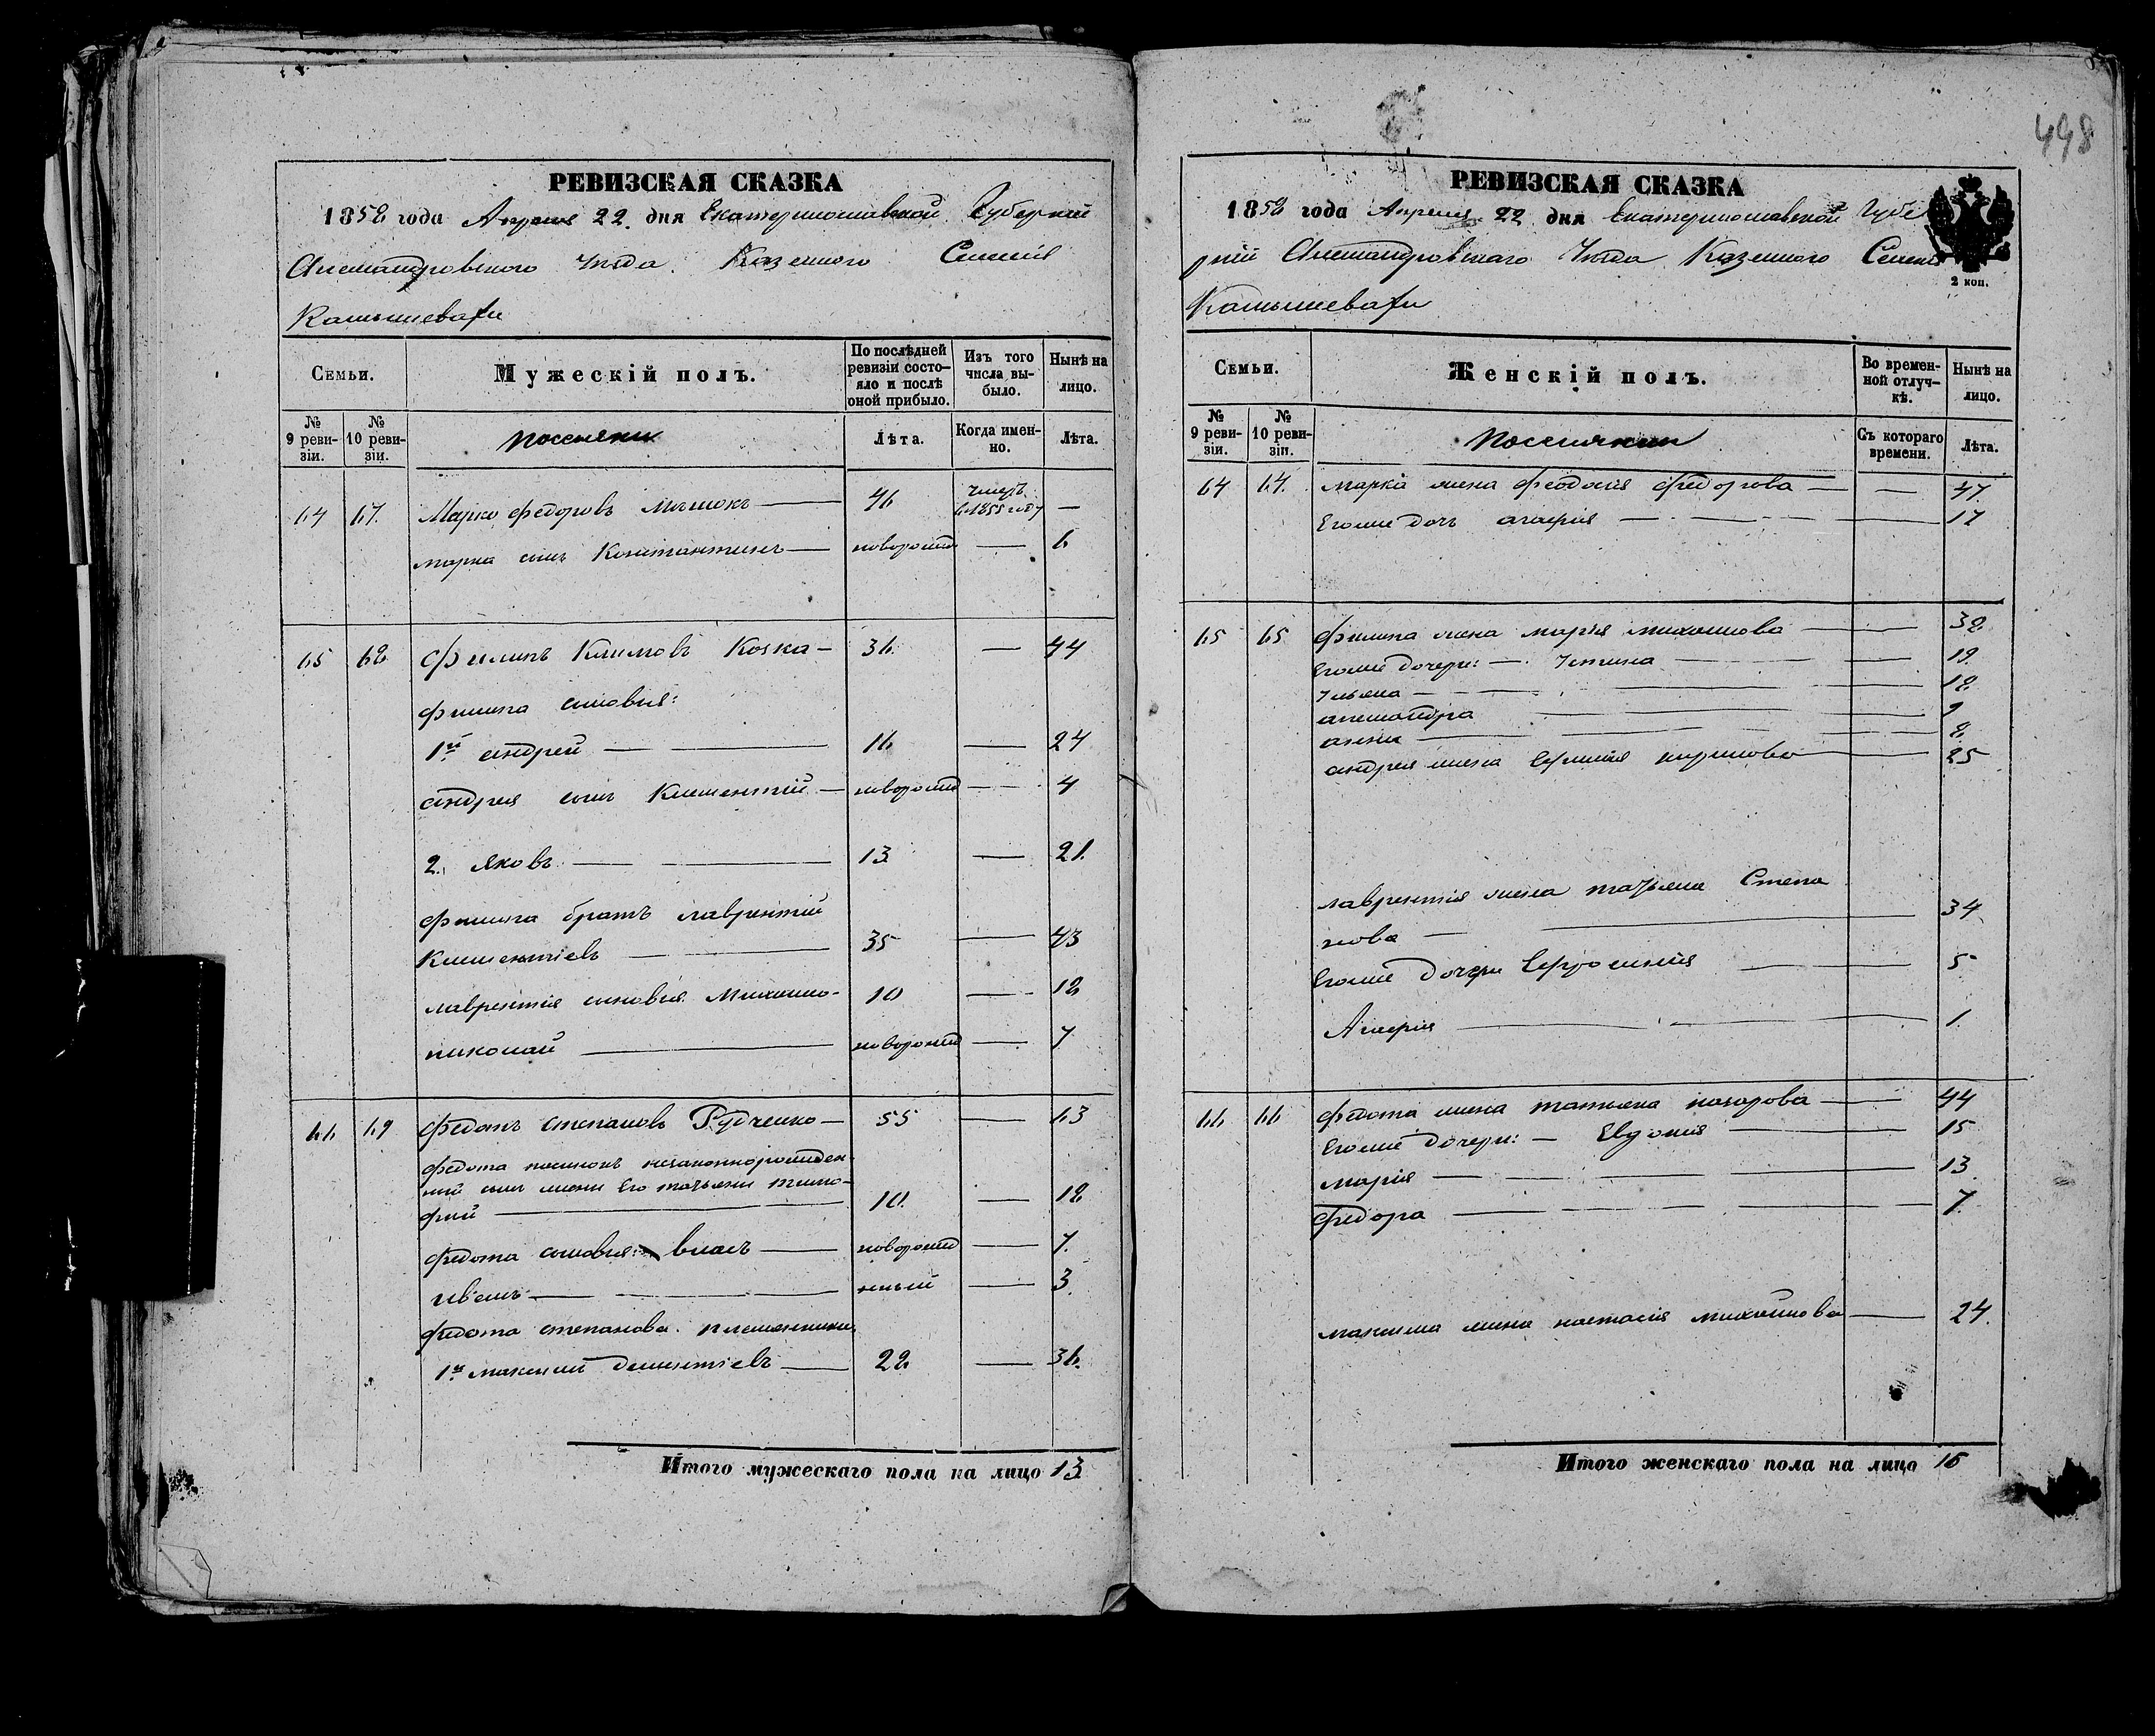 498
РЕВИЗСКАЯ СКАЗКА
1858 года Апреля 22 дня Екатеринославской Губернии
Александровского Уезда Казенного Селения
Камышевахи
Семьи.
Мужескій полъ.
По послѣдней ревизіи состояло и послѣ оной прибыло.
Изъ того числа выбыло.
Нынѣ на лицо.
№ 9 ревизіи.
№ 10 ревизіи.
поселяни
Лѣта.
Когда именно.
Лѣта.
64 67. Марко федоровъ — 46 — умеръ в 1855 году —
марка сынъ Константинъ — новорожд — 6
65 68 Филипъ Климовъ Кочка — 36 — 44
филипа сыновья:
1й андрей — 16 — 24
андрея сынъ Клементий — новорожд — 4
2. яковъ — 13 — 21.
филипа братъ лаврентий
Клементиевъ — 35 — 43
лаврентия сыновья Михаило — 10 — 18
николай — новорожд — 7
66 69 федотъ степановъ Рудченко — 55 — 63
федота пасынокъ незаконнорожден
ний сынъ жены Его татьяни тимо
фий — 10. — 18
федота сыновья: власъ — новорожд — 7.
иванъ — нный — 3.
федота степанова племянники
1й максим дементиевъ — 28 — 36.
Итого мужескаго пола на лицо 13
РЕВИЗСКАЯ СКАЗКА
1858 года Апреля 22 дня Екатеринославской Губе
рнии Александровского Уезда Казенного Селения
2 коп.
Камышевахи
Семьи.
Женскій полъ.
Во временной отлучкѣ.
Нынѣ на лицо.
№ 9 ревизіи.
№ 10 ревизіи.
поселянки
Съ котораго времени.
Лѣта.
64 64. марка жена феодосия федорова — — 47.
Егоже дочь агафия — 17
65 65 филипа жена мария михаилова — 38
Егоже дочери: — устина — 19.
ульяна — 12
александра — 9
анна — 8
андрея жена Ефимия кирилова — 25
лаврентия жена татьяна Степа
нова — 34
Егоже дочери Ефросиния — 5
Агафия — 1.
66 66 федота жена татьяна назарова — 44
Егоже дочери: — Евдокия — 15
мария — 13
федора — 7
максима жена настасия михайлова — 24.
Итого женскаго пола на лицо 16